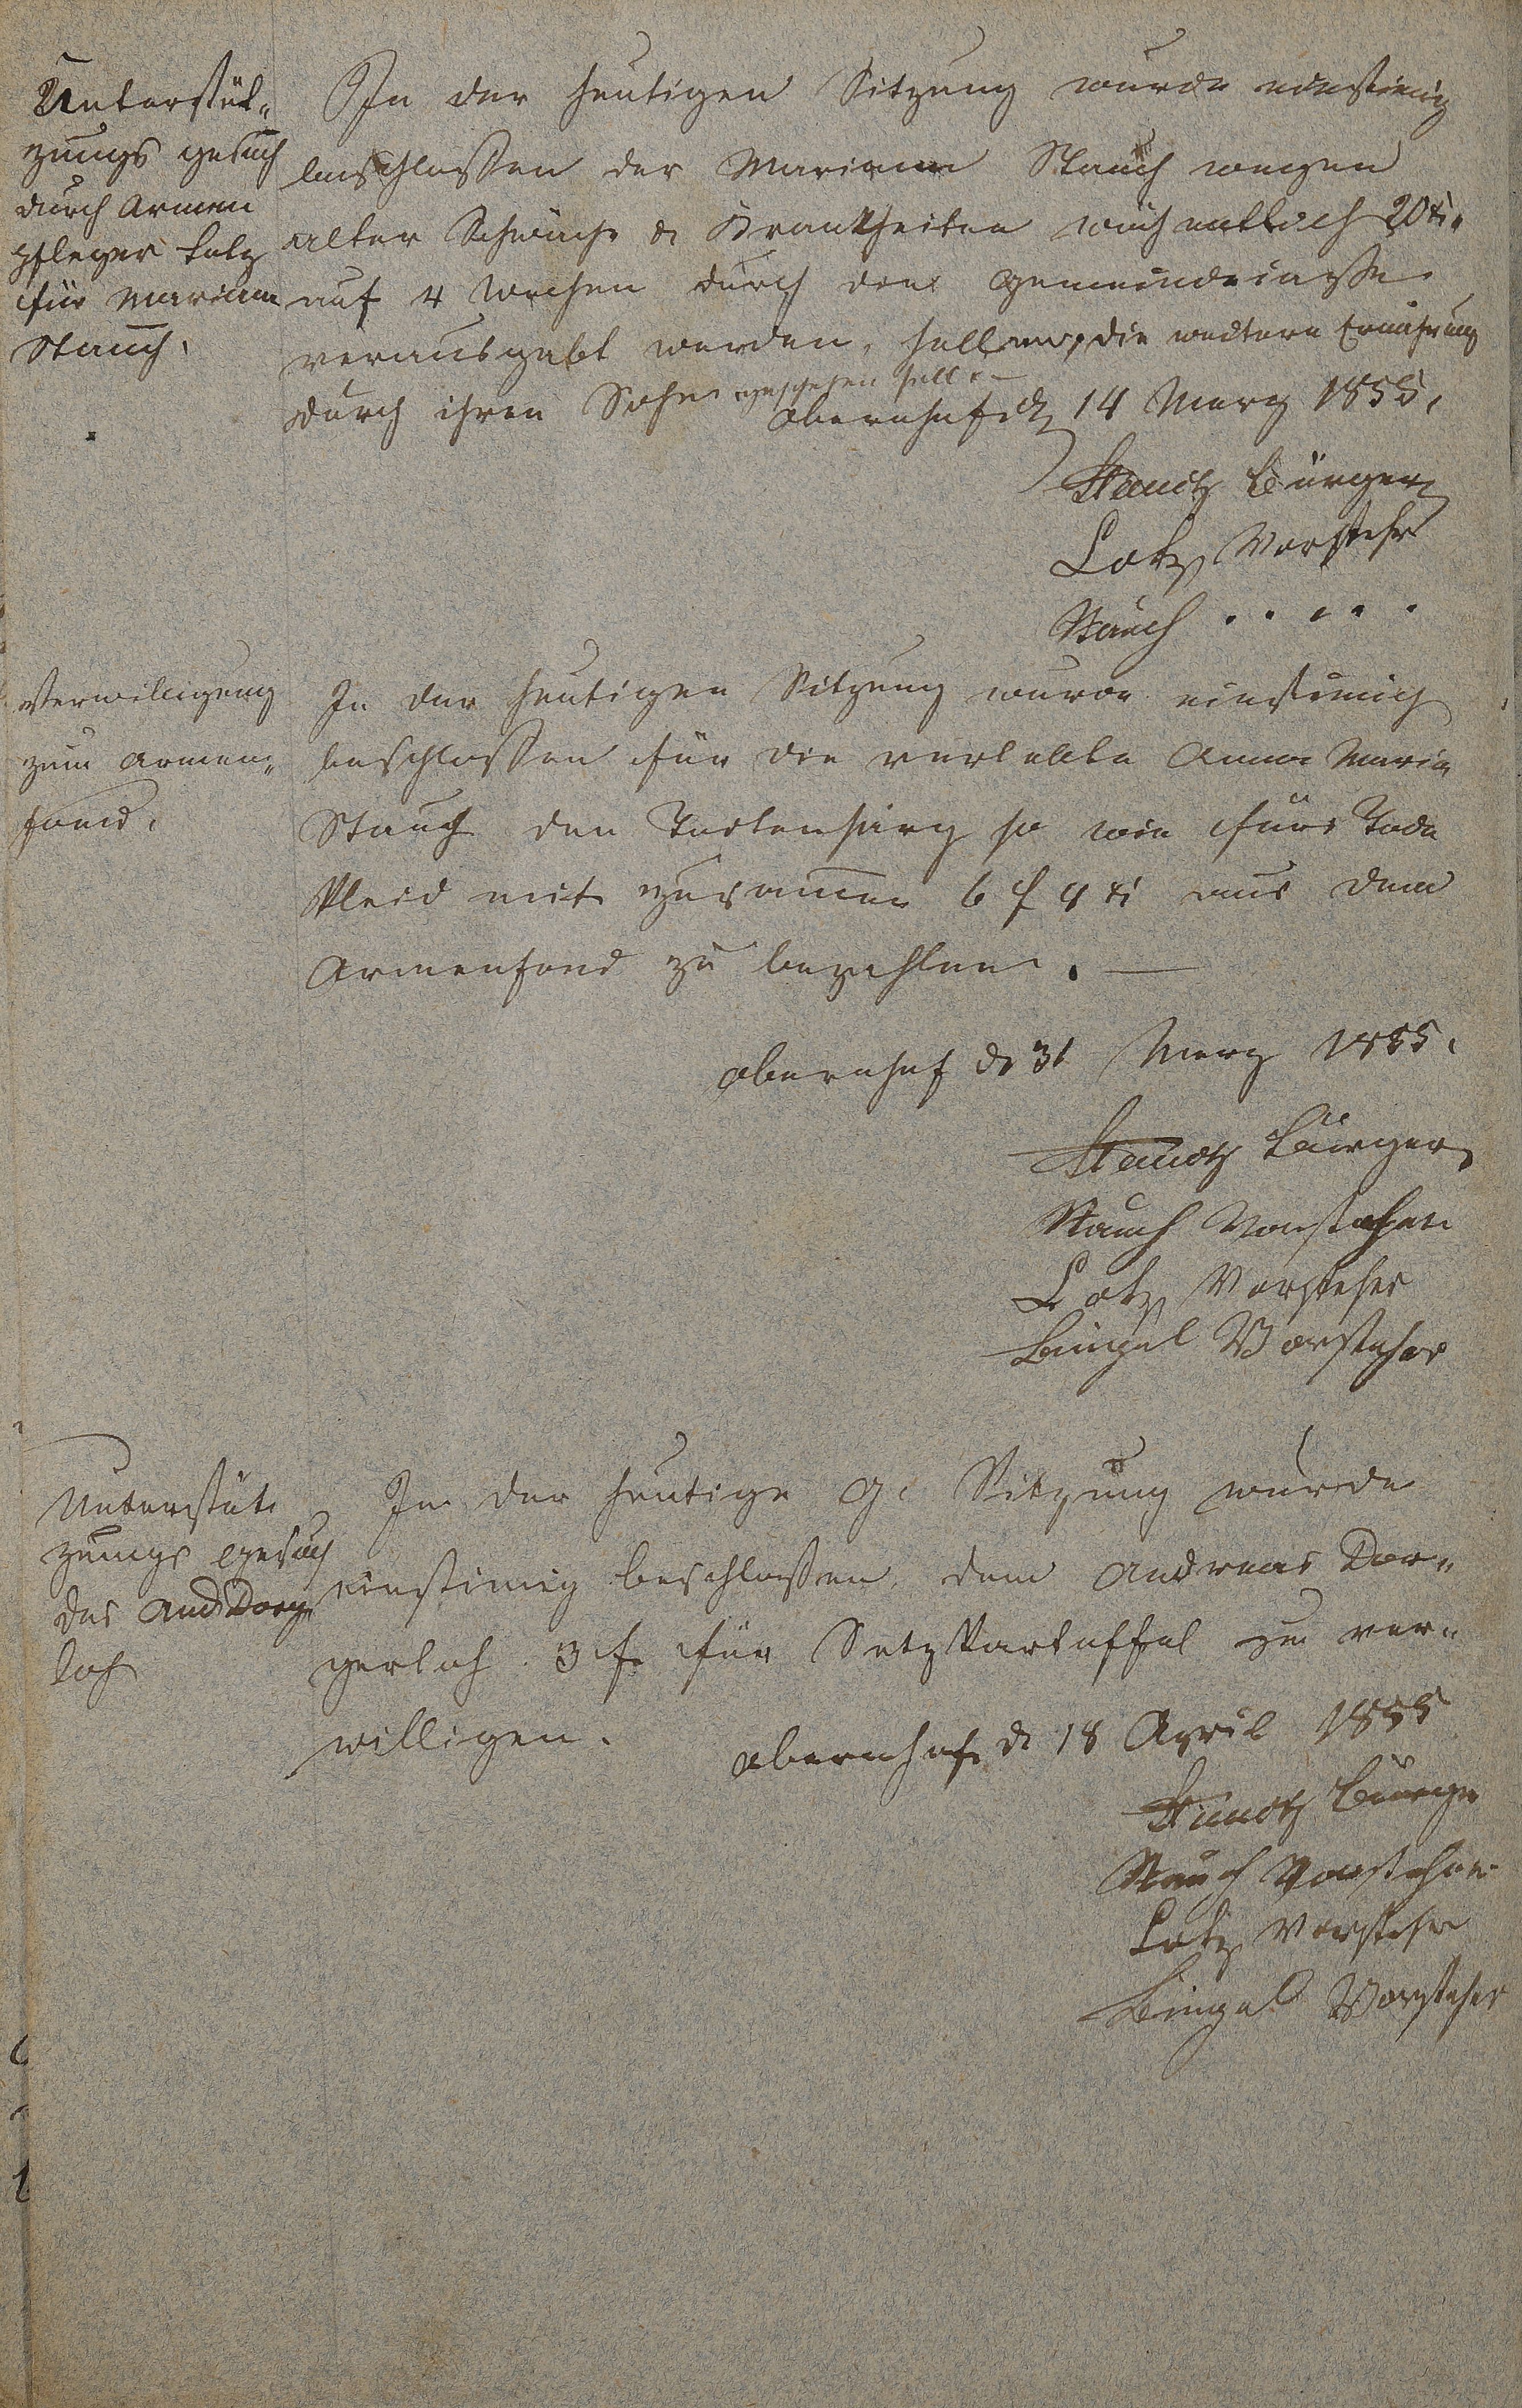 Unterstüt-
zungs gesuch
durch Armen
pfleger Lotz
für Mariana
Stauch.
In der heutigen Sitzung wurde einstimig
beschlossen der Mariana Stauch wegen
alter Schwäche & Krankheiten wöchentlich 20 xr.
auf 4 Wochen durch die Gemeindecasse
verausgabt werden, sollen, die weitere Ernährung
durch ihren Sohn geschehen soll. —
Obernhof d 14 Merz 1855.
Bürger
Lotz Vorsteher
Stauch . . . . .
Verwilligung
zum Armen-
fond.
In der heutigen Sitzung wurde einstimig
beschlossen für die verlebte Anna Maria
Stauch den Todtensarg so wie fürs Tode
Kleid mit zusammen 6 f 4 xr aus dem
Armenfond zu bezahlen. —
Obernhof d 31 Merz 1855.
Bürger
Stauch Vorsteher
Lotz Vorsteher
Bingel Vorsteher
Unterstüt
zungs gesuch
des And Dorge
loh
In der heutige G. Sitzung wurde
einstimig beschlossen, dem Andreas Dor-
gerloh 3 f. für Setzkartoffel zu ver-
willigen.
Obernhof d 18 April 1855
Bürger
Stauch Vorsteher
Lotz Vorsteher
Bingel Vorsteher